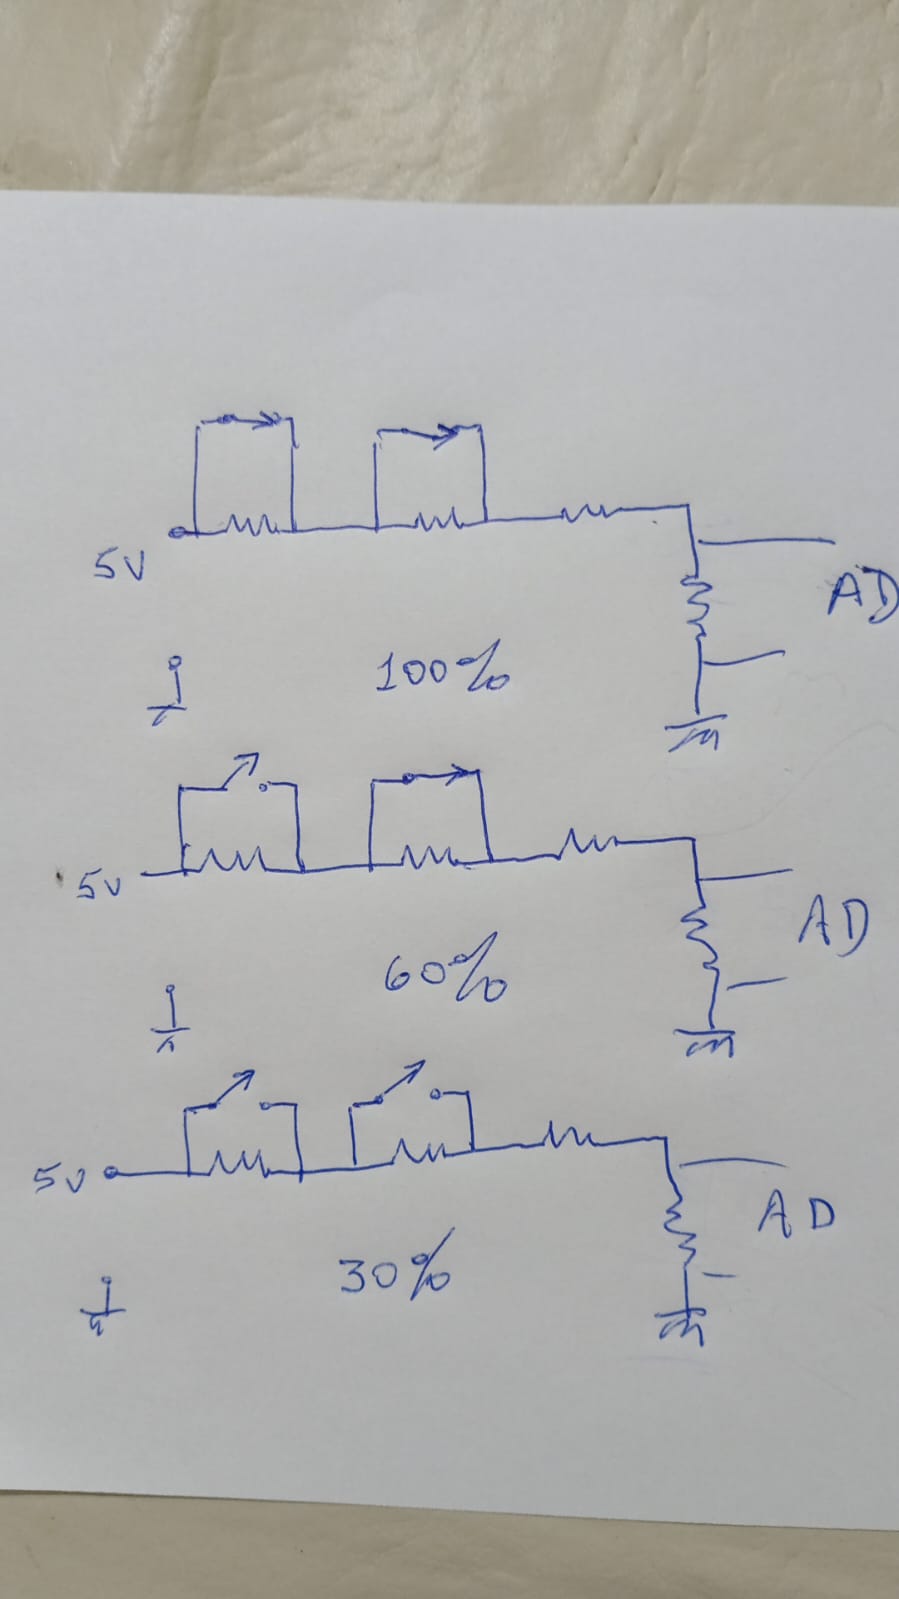 5V
AD
100%
5V
AD
60%
5V
AD
30%